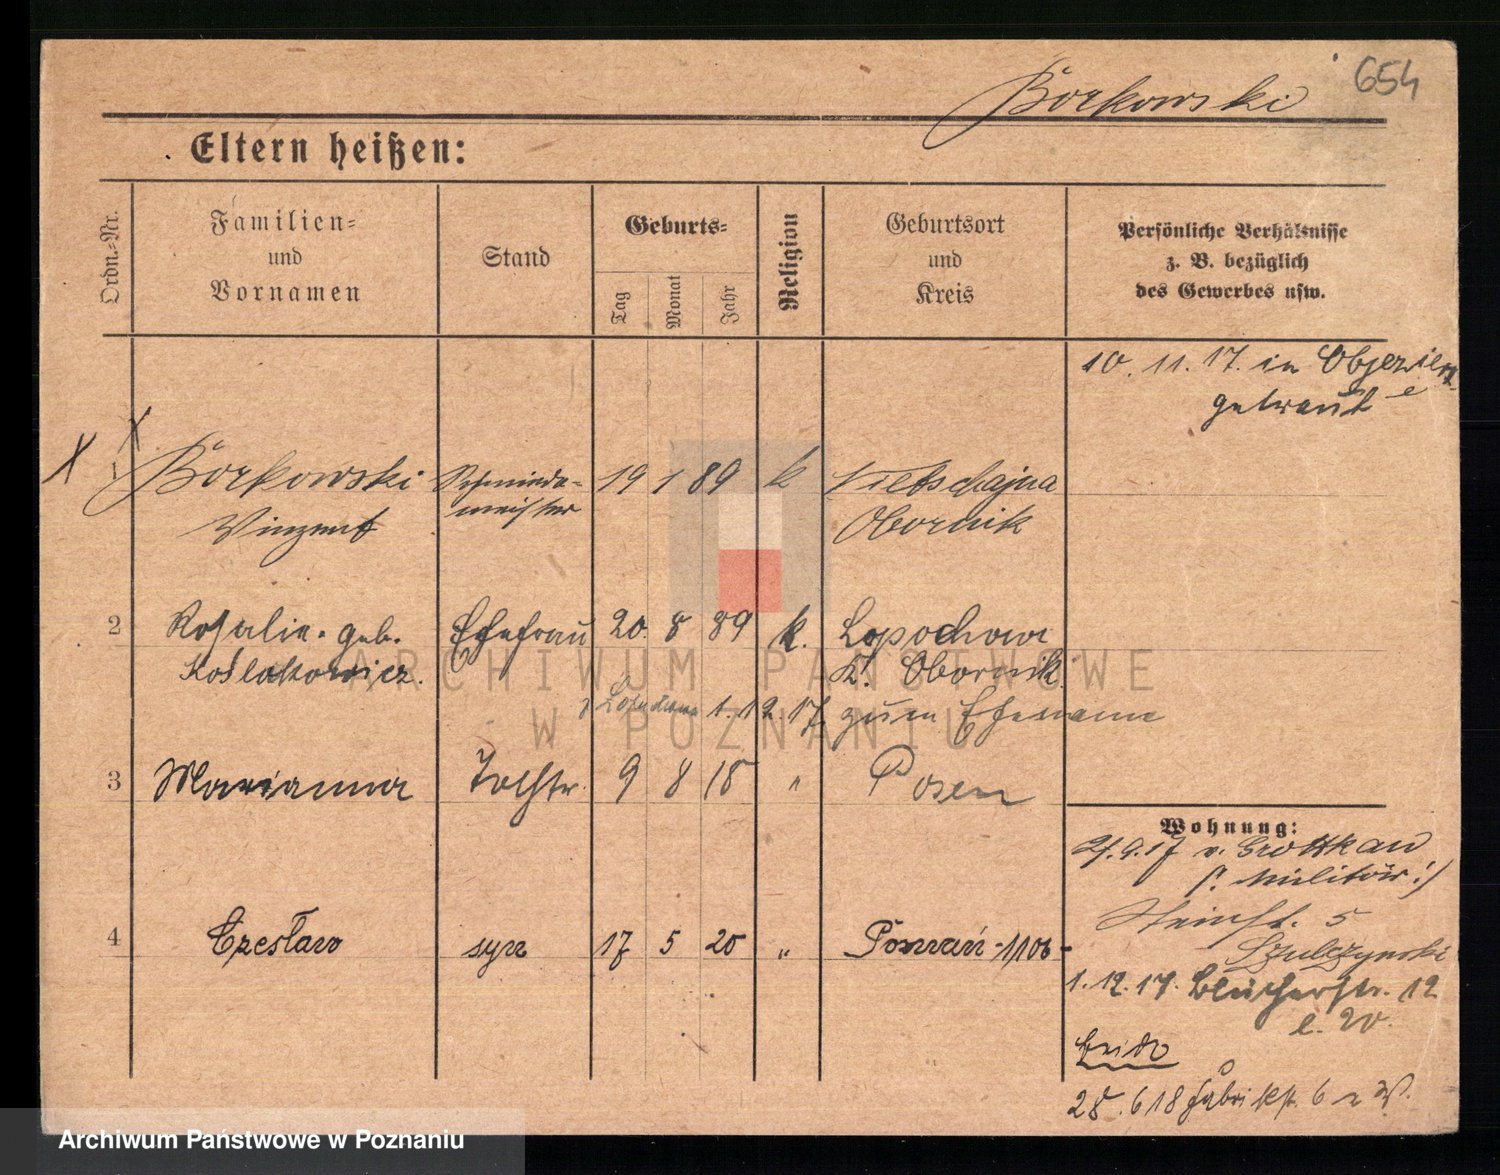 Borkowski 654
Eltern heißen:
Ordn.-Nr.
Familien-
und
Vornamen
Stand
Geburts-
Tag
Monat
Jahr
Religion
Geburtsort
und
Kreis
Persönliche Verhältnisse
z. B. bezüglich
des Gewerbes usw.
10. 11. 17. in Objezierze
getraut
1 Borkowski Schmiede- 19 1 89 k Nietschajna
Vinzent meister Obornik
2 Rosalie geb. Ehefrau 20. 8 89 k. Lopochowo
Koslakowicz. K. Obornik
1. 12. 17. zum Ehemann
3 Marianna Tochter 9 8 18 " Posen
4 Czesław syn 17 5 20 " Poznań - 1/106 -
Wohnung:
21. 9. 17 v. Grottkau
(: Militär :)
5
Szulczynski
1. 12. 17. Blücherstr. 12
b. 20.
beide
25. 6 18 Fabrikstr. 6
ARCHIWUM PAŃSTWOWE
W POZNANIU
Archiwum Państwowe w Poznaniu